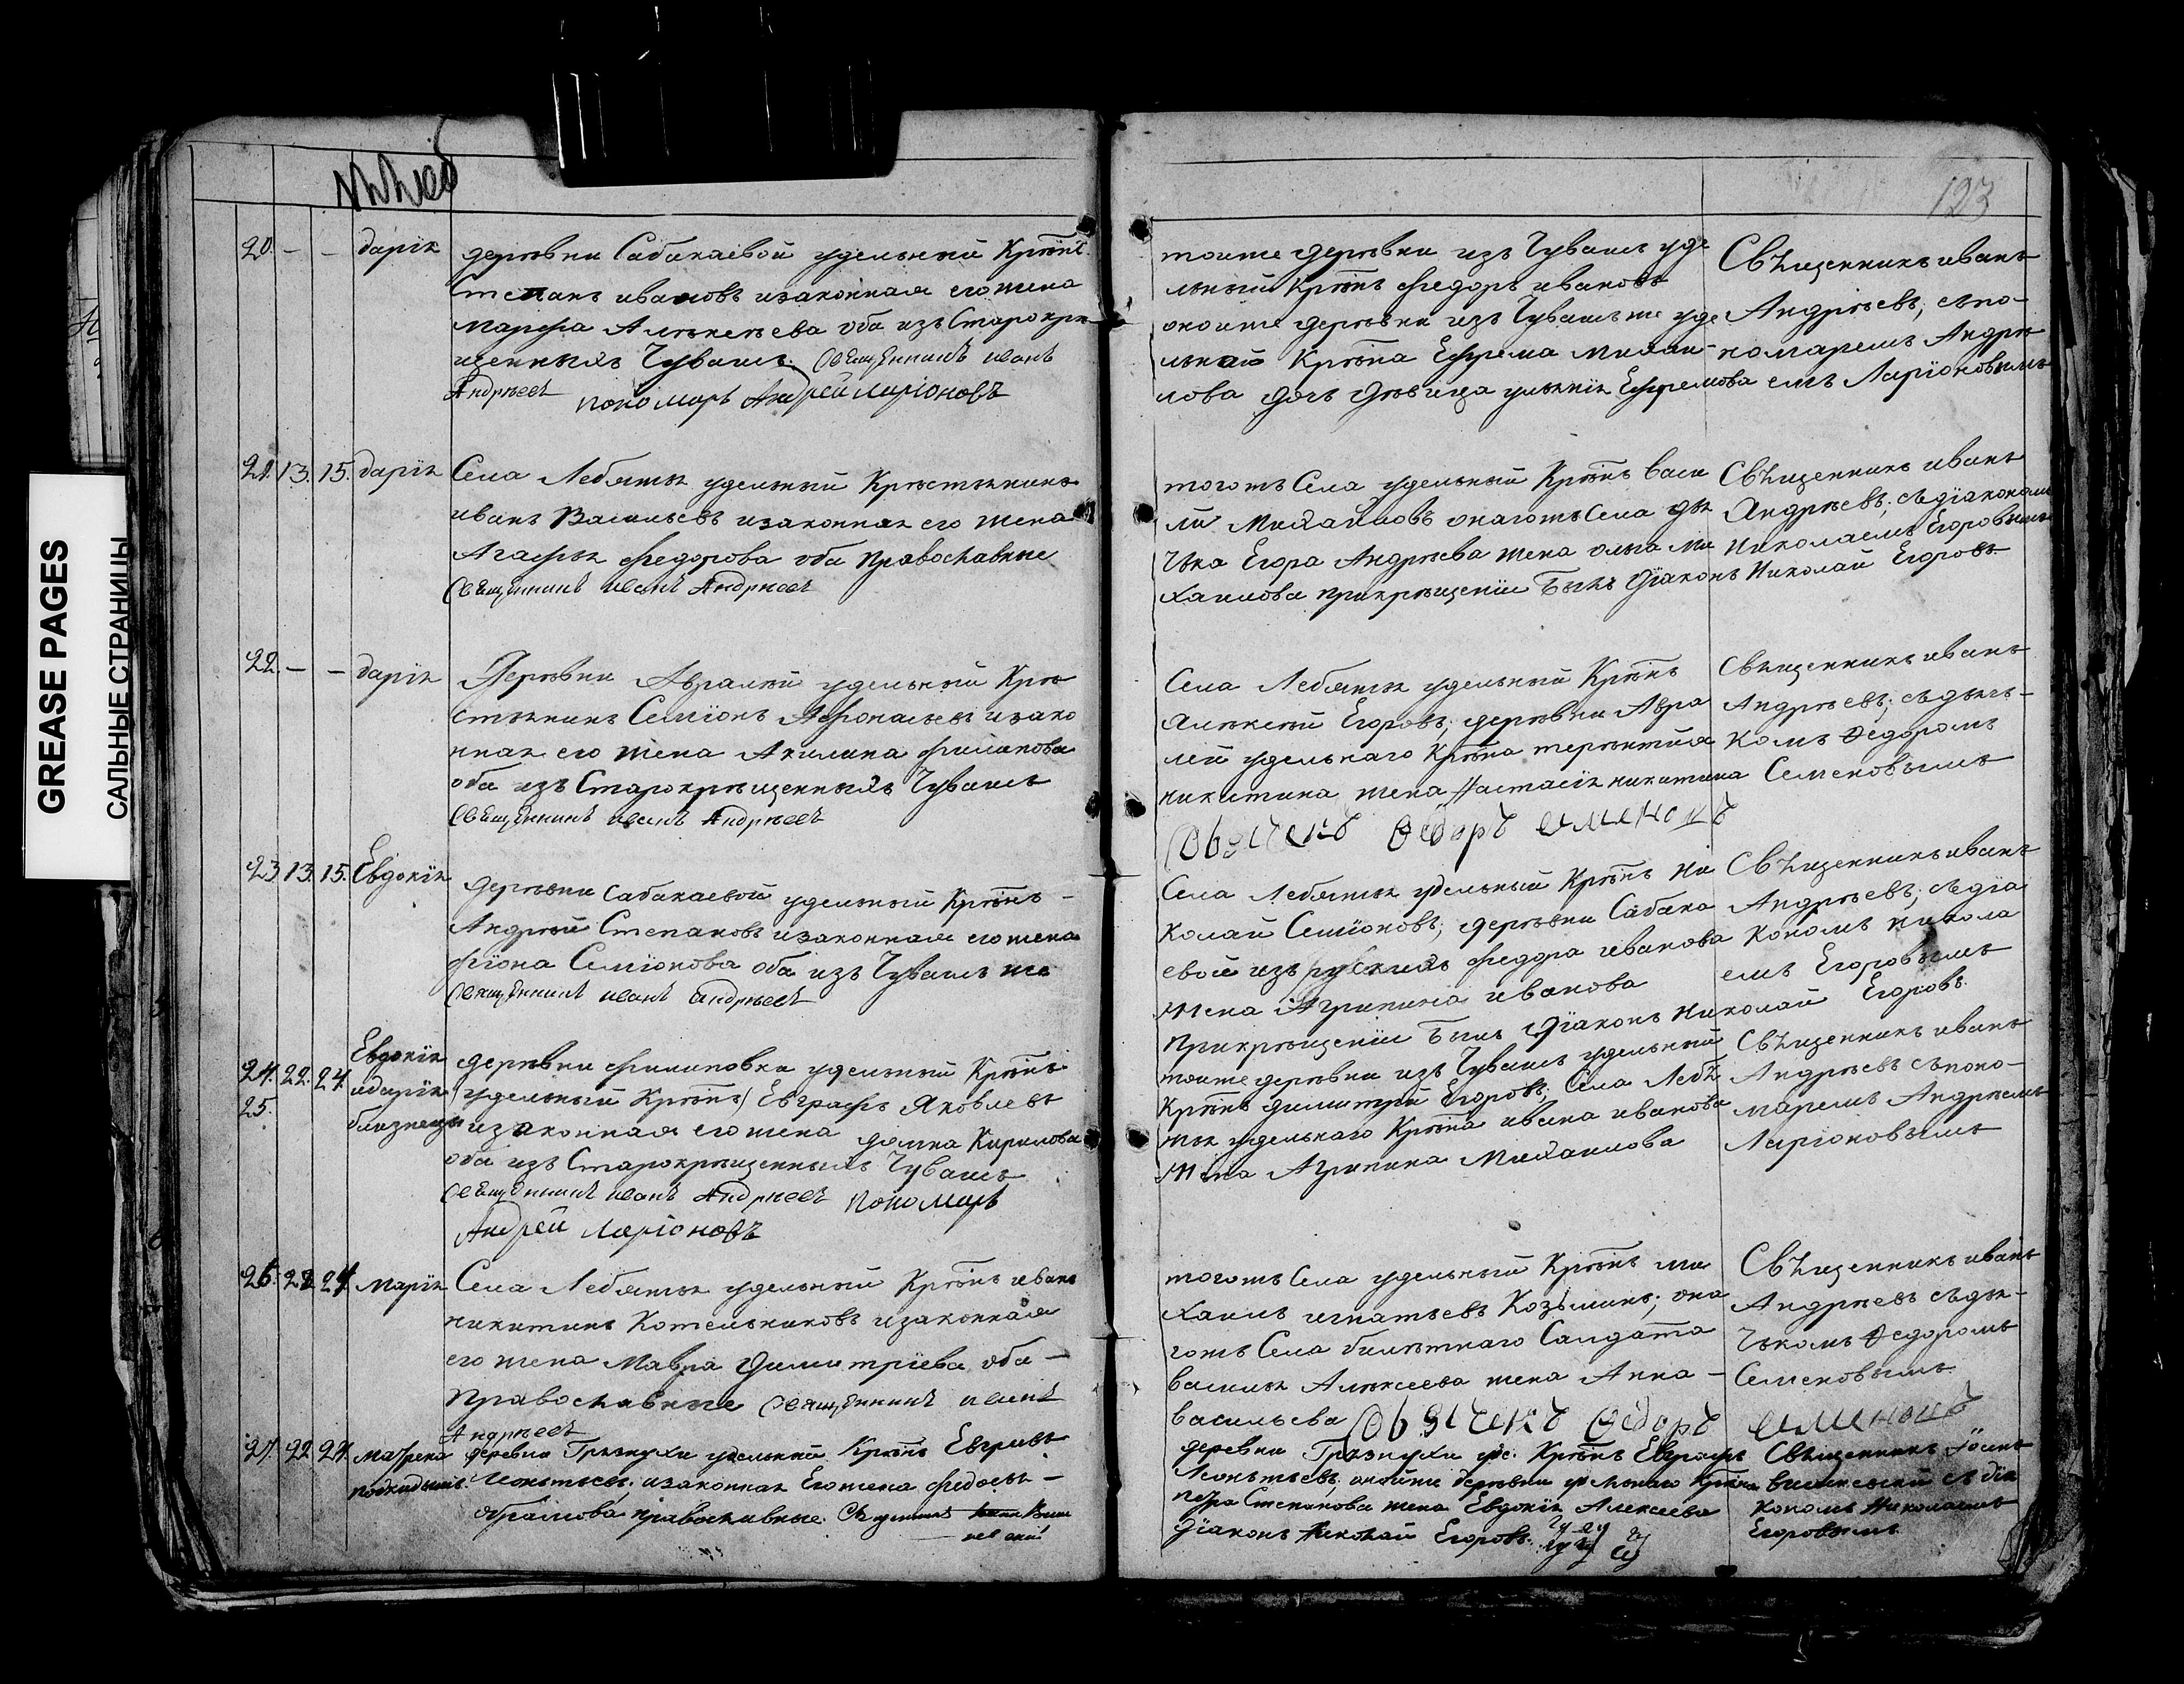 GREASE PAGES
САЛЬНЫЕ СТРАНИЦЫ
123
20. — — дарія
деревни Сабакаевой удельный Крѣнъ
Степанъ ивановъ изаконная его жена
марфа Алѣксѣева оба изъ Старокре
щенныхъ Чувашъ. Священникъ иванъ
Андрѣевъ пономарь Андрей ларіоновъ
тоиже деревни изъ Чувашъ уде
льный Крѣнъ федоръ ивановъ
оноиже деревни изъ Чувашъ же уде
льнаго Крѣна Ефрема михаи-
лова дочь дѣвица Ефремова
Свѣщенникъ иванъ
Андрѣевъ, съпо-
номаремъ Андрѣ
емъ Ларіоновымъ
21. 13. 15. дарія
Села Лебяжья удельный Крѣстьянинъ
иванъ Васильевъ изаконная его жена
Агафья федорова оба православные
Священникъ иванъ Андрѣевъ
тогожъ Села удельный Крѣнъ васи
лій Михаиловъ онагожъ Села дь
чка Егора Андрѣева жена ольга ми
хаилова прикрѣщеніи былъ діаконъ Николай Егоровъ
Свѣщенникъ иванъ
Андрѣевъ, съдіакономъ
Николаемъ Егоровымъ
22. — — дарія
Дерѣвни Авралей удельный Крѣ
стьянинъ Семіонъ Афонасьевъ изако
нная его жена Акилина филипова
оба изъ Старокрѣщенныхъ Чувашъ
Священникъ иванъ Андрѣевъ
Села Лебяжья удельный Крѣнъ
Алѣксей Егоровъ, дерѣвни Авра
лей удельнаго Крѣна терѣнтия
никитина жена Настасія никитина
Обьячекъ Ѳедоръ семеновъ
Свѣщенникъ иванъ
Андрѣевъ, съдьяч-
комъ Ѳедоромъ
Семеновымъ
23. 13. 15. Евдокія
дерѣвни Сабакаевой удельный Крѣнъ —
Андрей Степановъ изаконная его жена
фіона Семіонова оба изъ Чувашъ же
Священникъ иванъ Андрѣевъ
Села Лебяжья удельный Крѣнъ Ни
колай Семіоновъ, дерѣвни Сабака
евой изъ рускихъ федора иванова
жена Агрипина иванова
прикрѣщеніи былъ діаконъ Николай Егоровъ.
Свѣщенникъ иванъ
Андрѣевъ, съдіа
кономъ никола
емъ Егоровымъ
24. 22. 24. Евдокія
25. идарія
близнецы
дерѣвни филиповки удельный Крѣнъ
(удельный Крѣнъ) Евграфъ Яковлевъ
изаконная его жена домна Кирилова
оба изъ Старокрѣщенныхъ Чувашъ
Священникъ иванъ Андрѣевъ пономарь
Андрей ларіоновъ
тоиже дерѣвни изъ Чувашъ удельный
Крѣнъ димитрій Егоровъ, Села Лебя
жья удельнаго Крѣна ивана иванова
жена Агрипина Михаилова
Свѣщенникъ иванъ
Андрѣевъ съпоно-
маремъ Андрѣемъ
Ларіоновымъ
26. 22. 24. Марія
Села Лебяжья удельный Крѣнъ иванъ
никитинъ Котельниковъ изаконная
его жена Мавра Димитріева оба —
православные Священникъ иванъ
Андрѣевъ
тогожъ Села удельный Крѣнъ ми
хаилъ игнатьевъ Козьминъ, она
гожъ Села билѣтнаго Салдата
василья Алѣксеева жена Анна —
васильева Обьячекъ Ѳедоръ семеновъ
Свѣщенникъ иванъ
Андрѣевъ съдья-
чькомъ Ѳедоромъ
Семеновымъ
27. 22. 24. матрена
подкидышъ
деревни Грязнухи удельный Крѣнъ Евграфъ
Леонтьевъ, изаконная Егожена федосья —
абрамова православные.
деревни Грязнухи уде. Крѣнъ Евграфъ
Леонтьевъ, онойже деревни удельнаго Крѣна
петра Степанова жена Евдокія Алексеева
Діаконъ Николай Егоровъ.
Свѣщенникъ
съ діа
кономъ Николаемъ
Егоровымъ